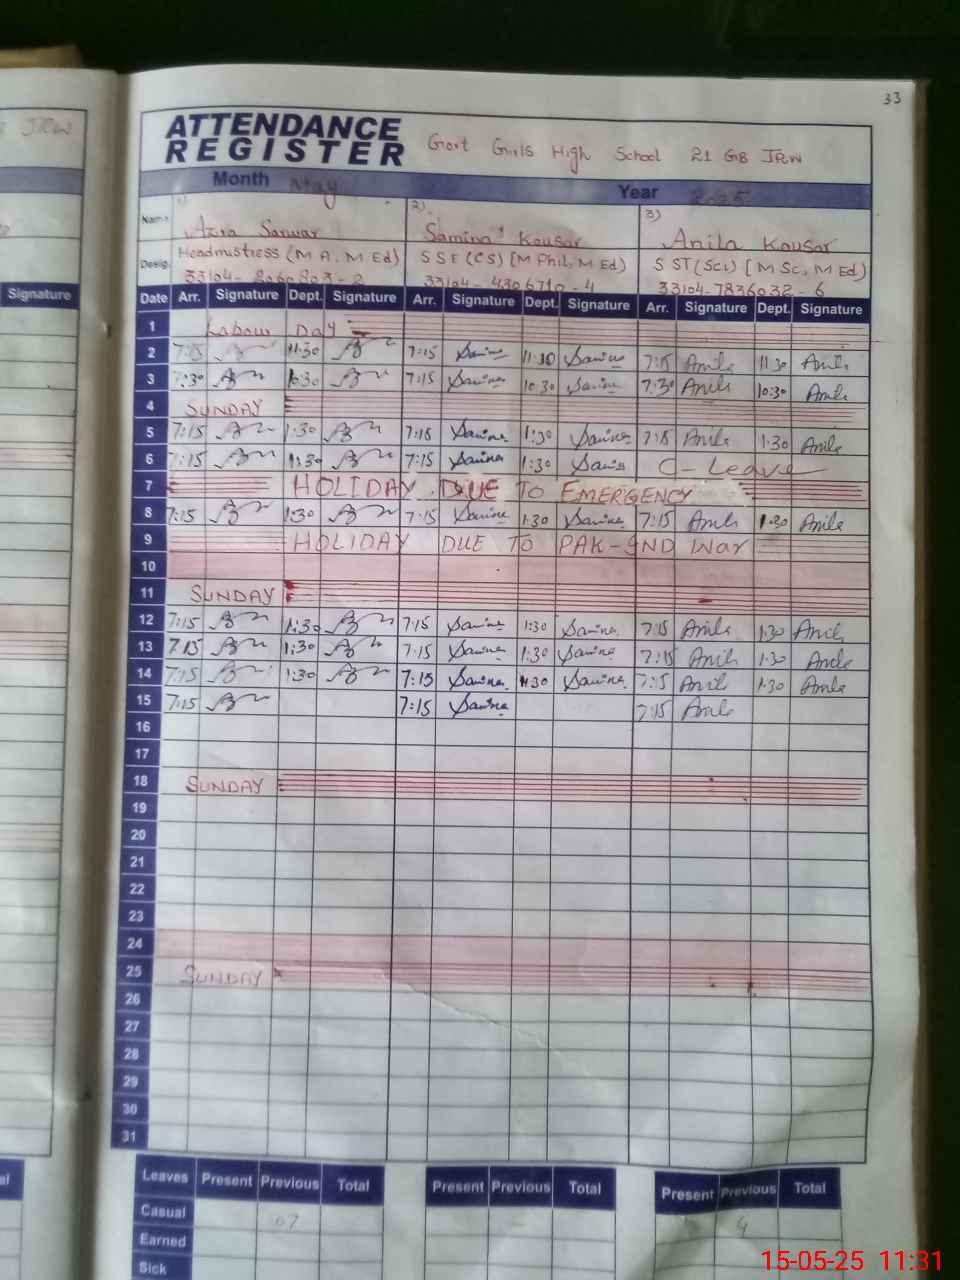 33
ATTENDANCE
REGISTER
Govt Girls High School 21 GB JRW
Month May Year 2025
Name 1) Azra Sarwar 2) Samina Kousar 3) Anila Kousar
Desig. Headmistress (M A, M Ed) S S E (CS) [M Phil, M Ed) S ST (Sci) [M Sc, M Ed)
33104-2060803-2 33104-4306710-4 33104-7836032-6
Signature
Date Arr. Signature Dept. Signature Arr. Signature Dept. Signature Arr. Signature Dept. Signature
1 Labour Day
2 7:15 11:30 7:15 Samina 11:30 Samina 7:15 Anila 11:30 Anila
3 7:30 10:30 7:15 Samina 10:30 Samina 7:30 Anila 10:30 Anila
4 SUNDAY
5 7:15 1:30 7:15 Samina 1:30 Samina 7:15 Anila 1:30 Anila
6 7:15 1:30 7:15 Samina 1:30 Samina C-Leave
7 HOLIDAY DUE TO EMERGENCY
8 7:15 1:30 7:15 Samina 1:30 Samina 7:15 Anila 1:30 Anila
9 HOLIDAY DUE TO PAK-IND War
10
11 SUNDAY
12 7:15 1:30 7:15 Samina 1:30 Samina 7:15 Anila 1:30 Anila
13 7:15 1:30 7:15 Samina 1:30 Samina 7:15 Anila 1:30 Anila
14 7:15 1:30 7:15 Samina 1:30 Samina 7:15 Anila 1:30 Anila
15 7:15 7:15 Samina 7:15 Anila
16
17
18 SUNDAY
19
20
21
22
23
24
25 SUNDAY
26
27
28
29
30
31
Leaves Present Previous Total Present Previous Total Present Previous Total
Casual 07 4
Earned
Sick
15-05-25 11:31